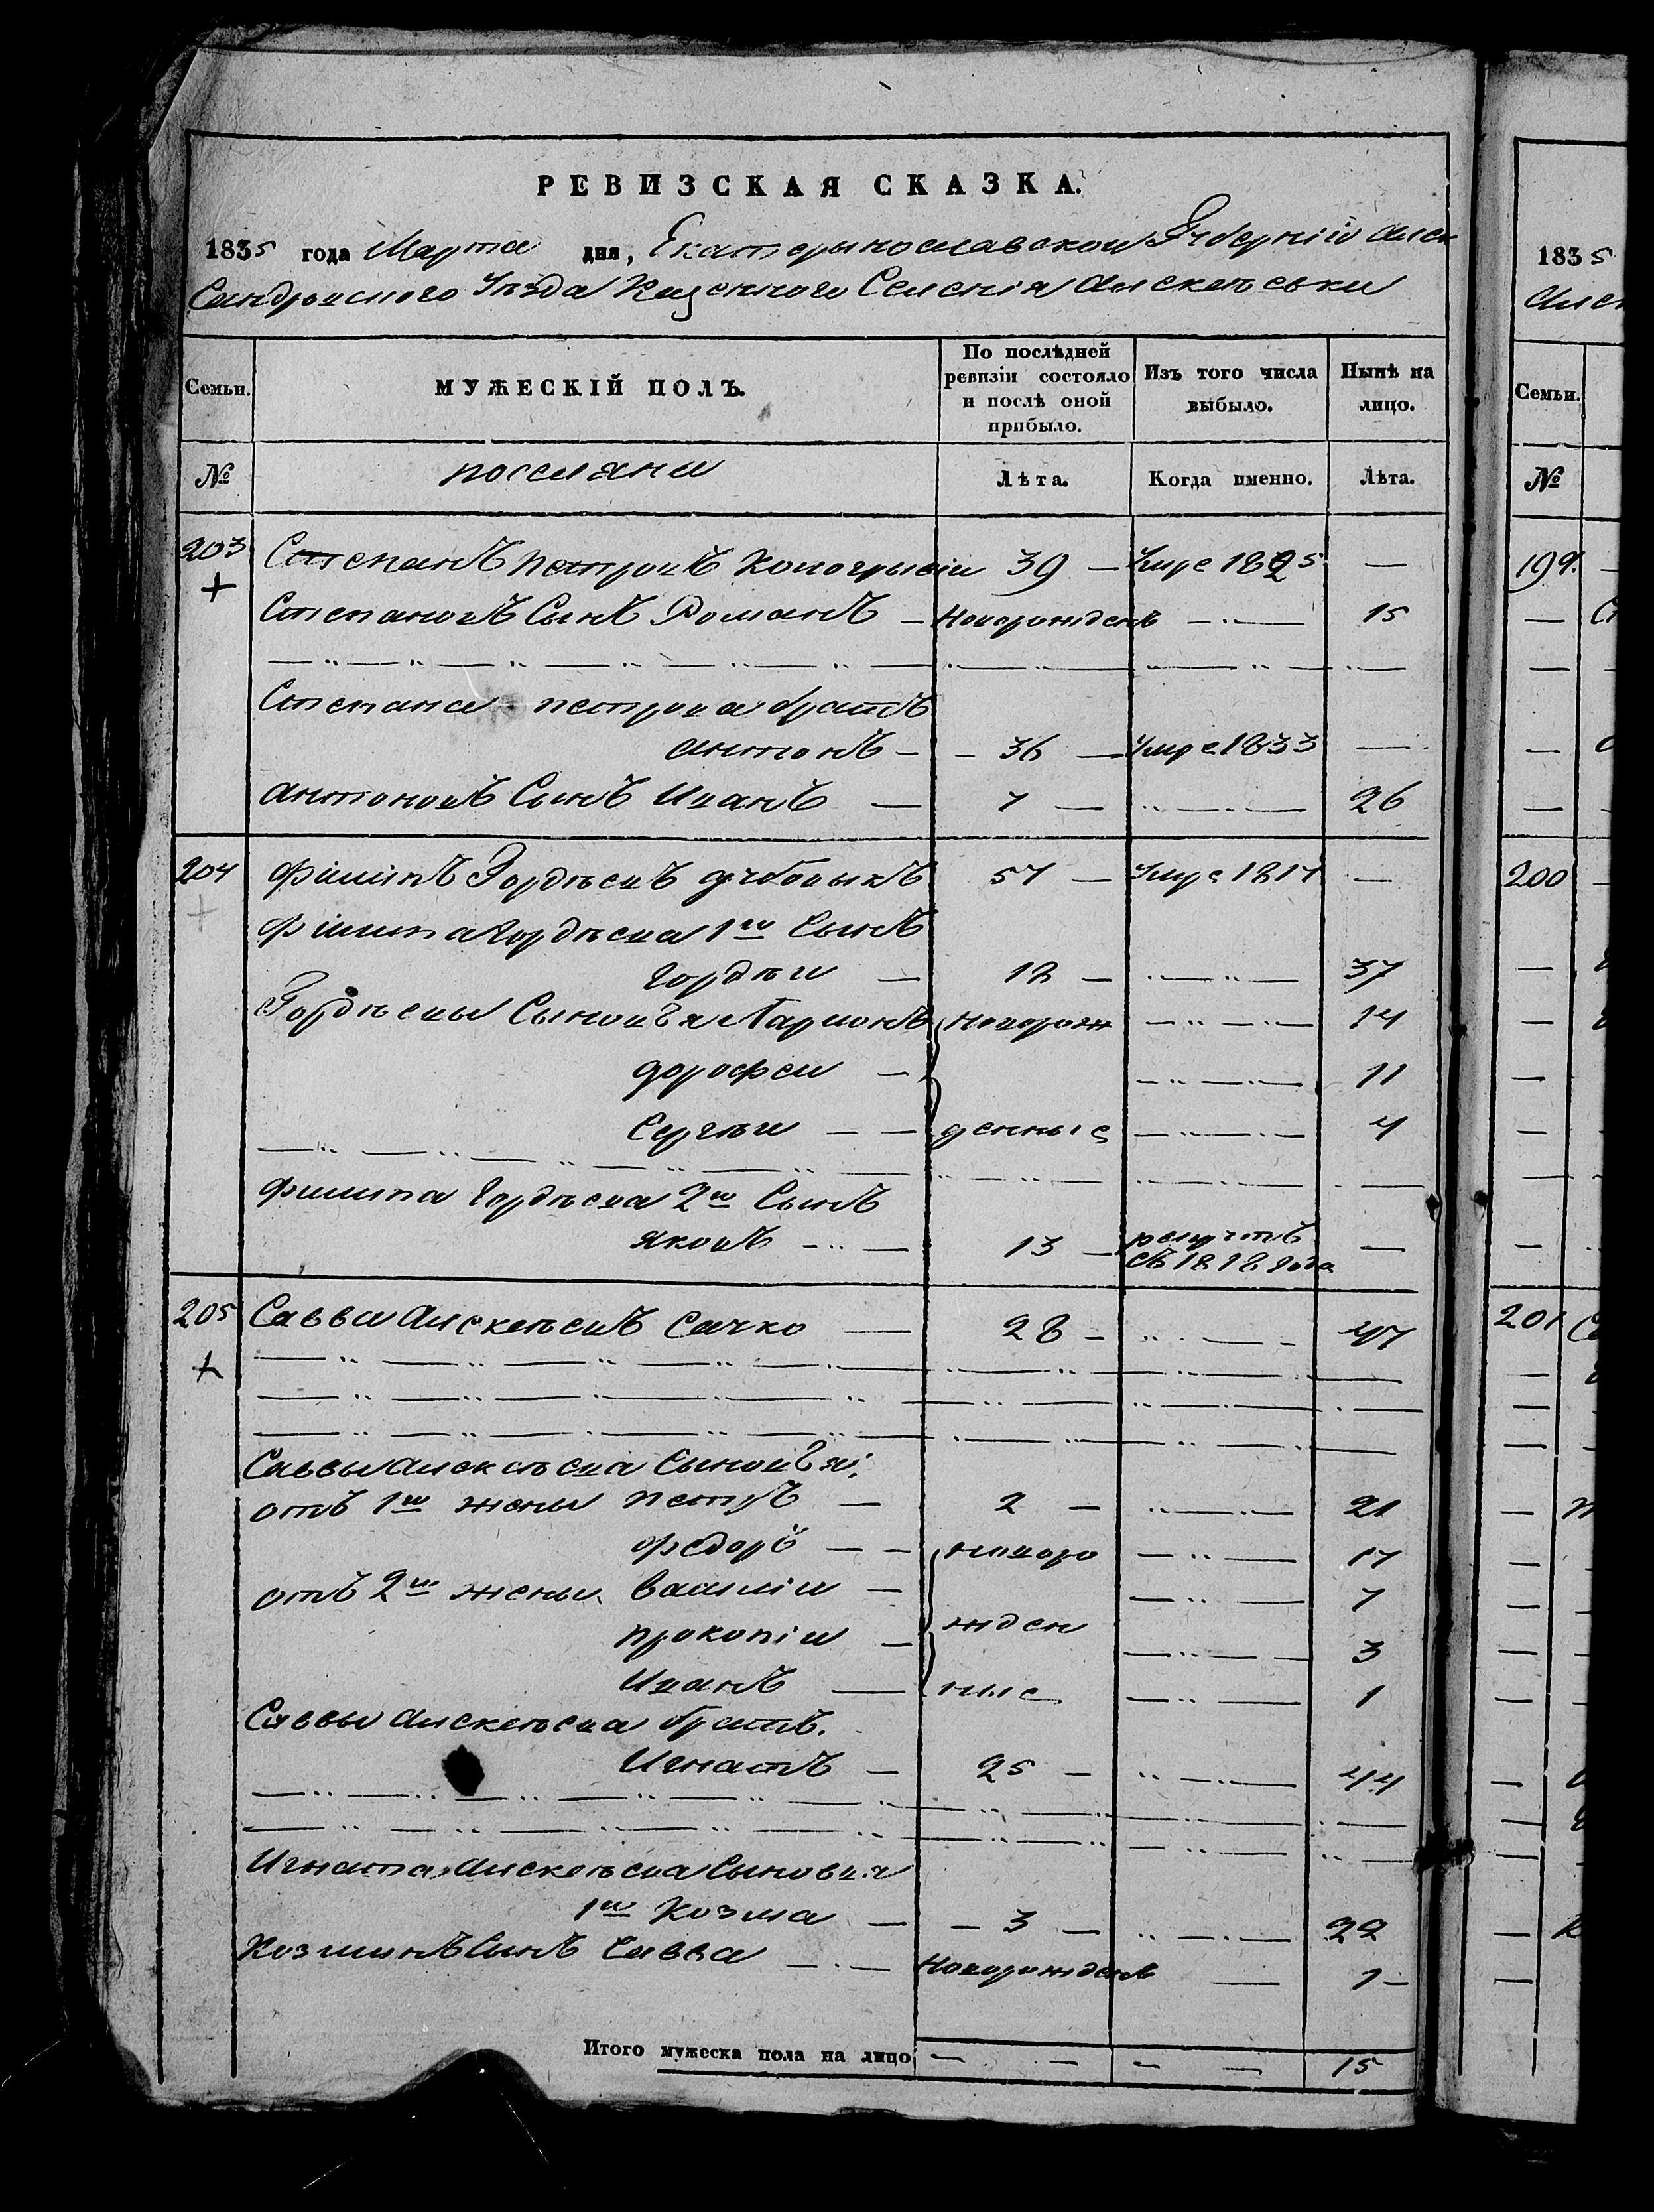 РЕВИЗСКАЯ СКАЗКА.
1835 года Марта дня, Екатеринославской Губерніи Алек
сандровского Уѣзда Казенного Селенія Алексѣевки
Семьи. МУЖЕСКІЙ ПОЛЪ. По послѣдней ревизіи состояло и послѣ оной прибыло. Изъ того числа выбыло. Нынѣ на лицо.
№ поселяне Лѣта. Когда именно. Лѣта.
203 Степанъ Петровъ 39 — Умре 1825 —
Степановъ Сынъ Романъ — Новорожденъ — 15
Степана Петрова братъ
Антонъ — 36 — Умре 1833 —
Антоновъ Сынъ Иванъ — 7 — 26
204 Филипъ Гордѣевъ 57 — Умре 1817 —
Филипа Гордѣева 1й Сынъ
Гордѣй — 18 — 37
Гордѣевы Сыновья Ларионъ новорож — 14
Дорофей — 11
Сергѣй — — денные — 4
Филипа Гордѣева 2й Сынъ
Яковъ — 13 — рекрутъ —
съ 1828 года
205 Савва Алексѣевъ Сачко — 28 — 47
Саввы Алексѣева Сыновья
отъ 1й жены Петръ — 2 — 21
Федоръ — — новоро — 17
отъ 2й жены Василій — 7
Прокопій — жден — 3
Иванъ — ные — 1
Саввы Алексѣева братъ.
Игнатъ — 25 — 44
Игната Алексѣева Сыновья
1й Козма — 3 — 22
Козминъ Сынъ Савва — Новорожденъ — 1
Итого мужеска пола на лицо — — — — 15
1835
Алек
Семьи.
№
199.
200
201